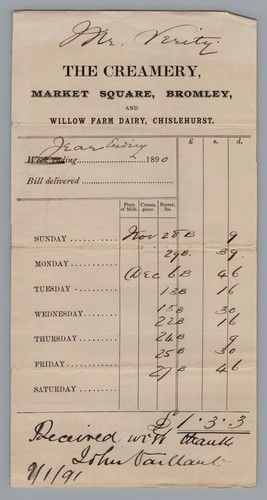 Mr. Verity.
THE CREAMERY,
MARKET SQUARE, BROMLEY,
AND
WILLOW FARM DAIRY, CHISLEHURST.
£ s. d.
Year Ending
Week ending 1890
Bill delivered
Pints of Milk. Cream, pints Butter, lbs.
SUNDAY Nov 28 B 9
29 B. 39.
MONDAY
Dec 6 B 46
TUESDAY 13 B 16
15 B 30
WEDNESDAY 22 B 16
THURSDAY 24 B 9
25 B 30
FRIDAY 27 B 46
SATURDAY
£ 1. 3. 3
Received with thanks
John Vaillant
9/1/91